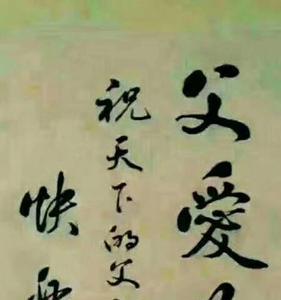 父愛
祝天下的父
快